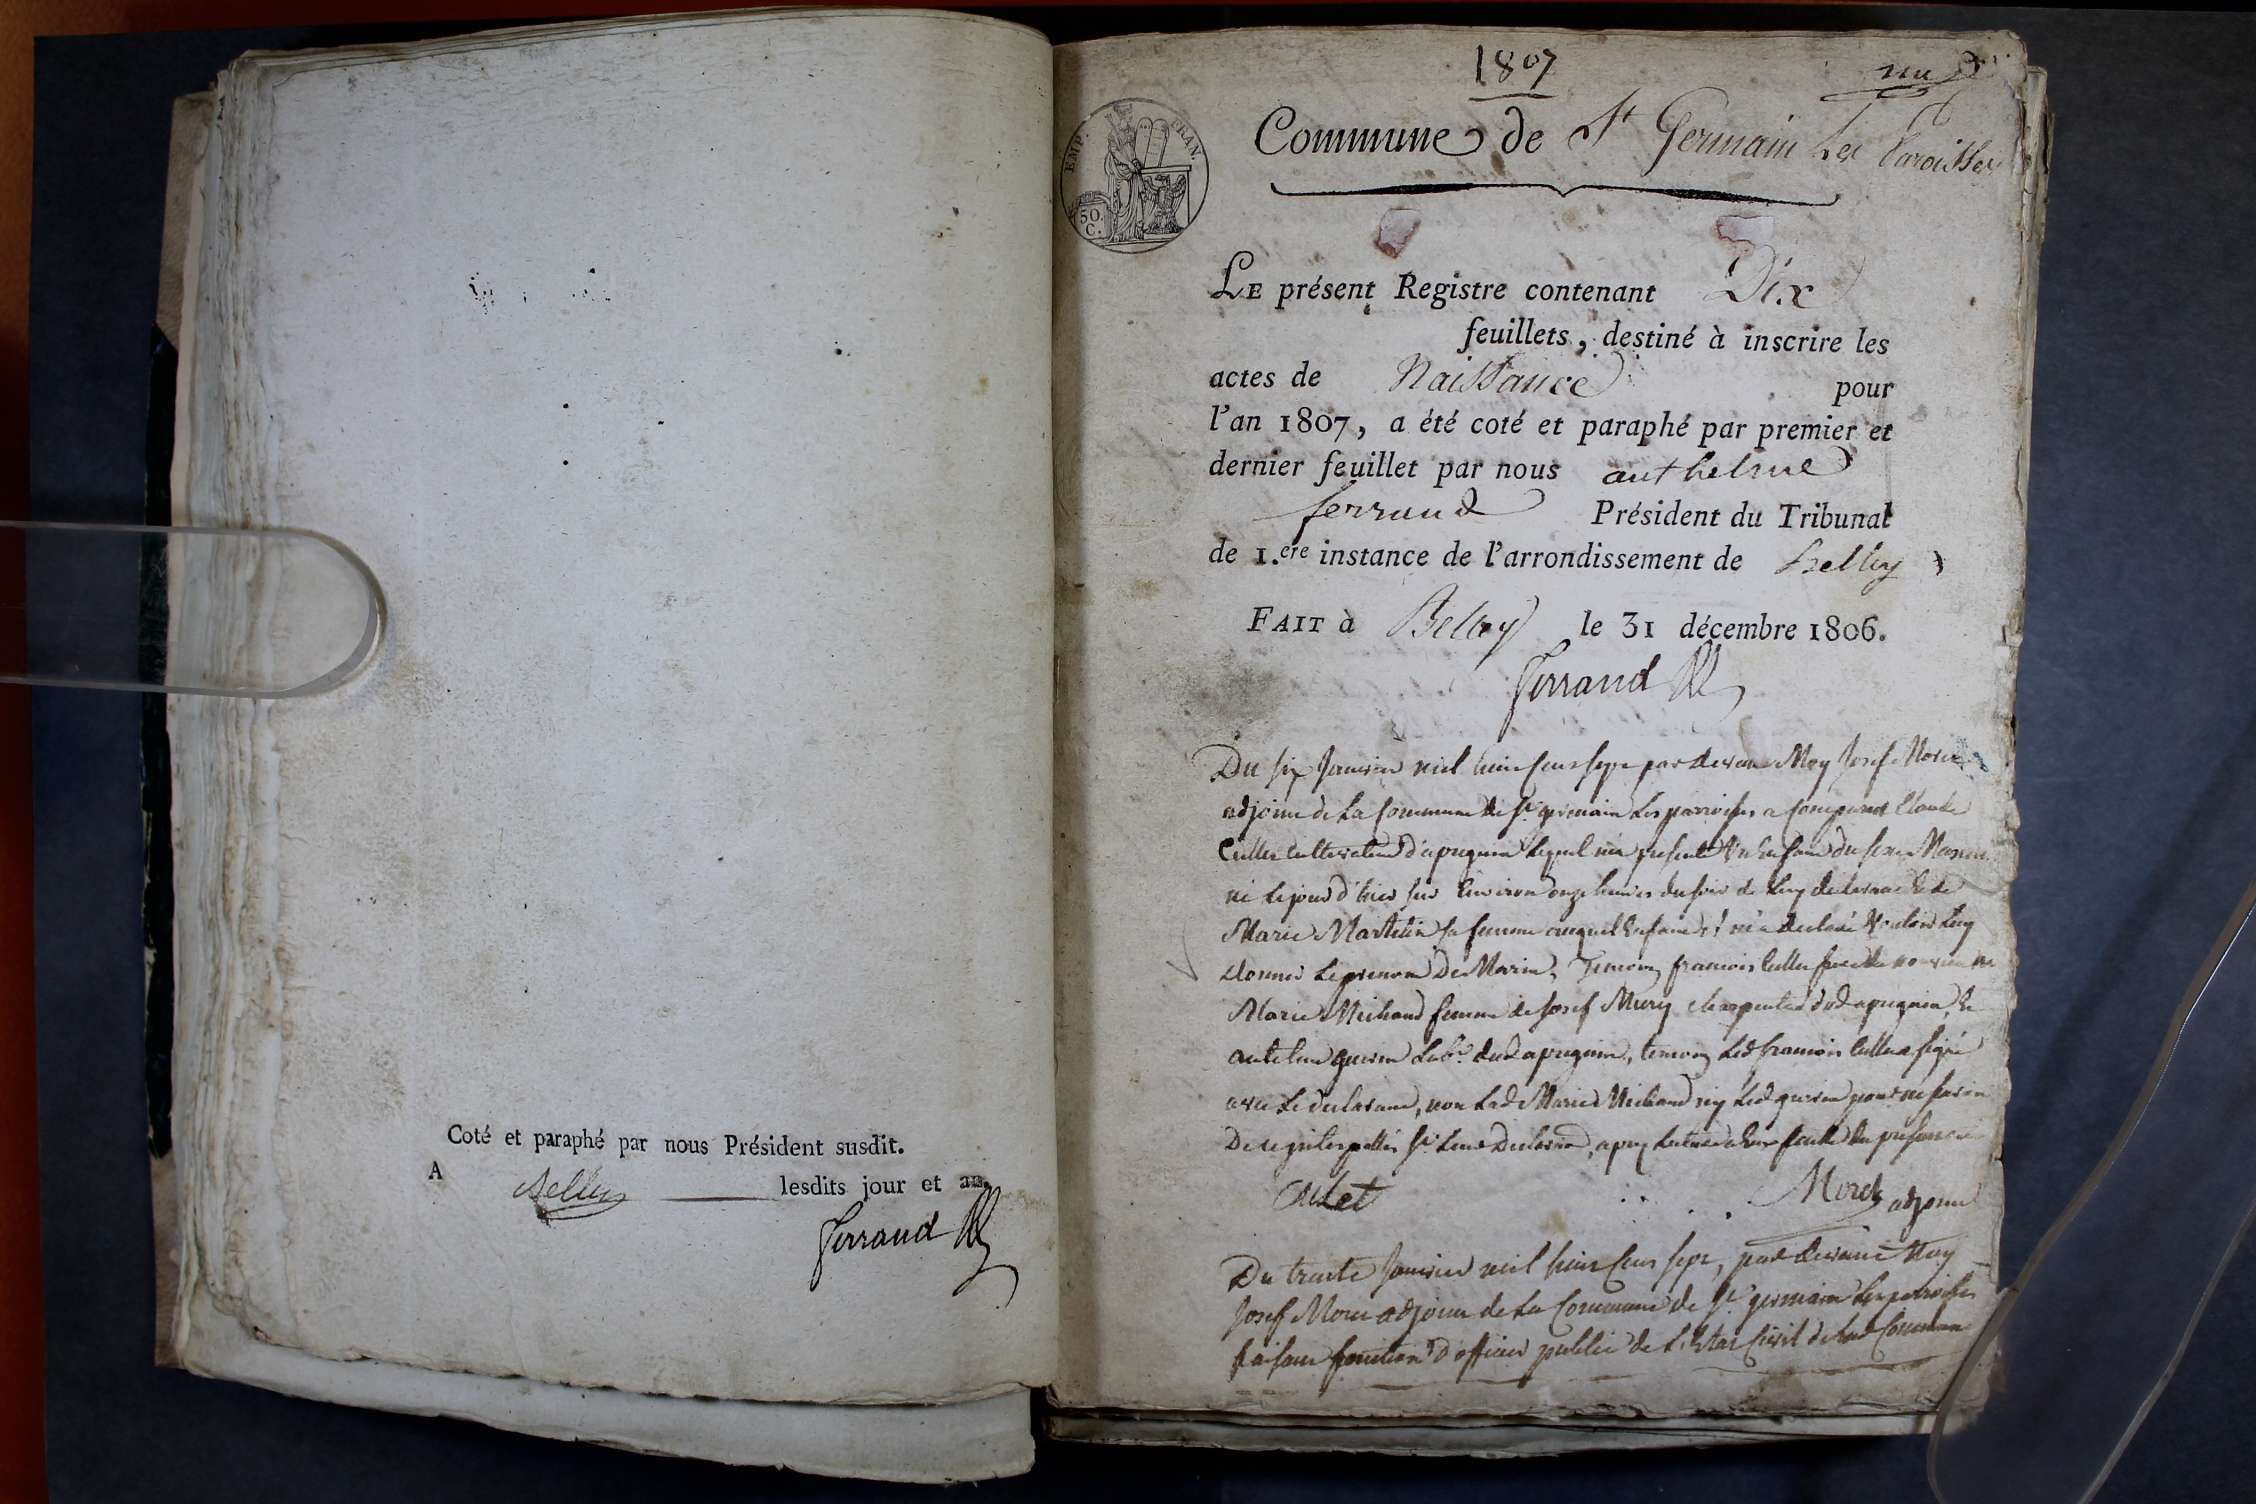 Coté et paraphé par nous Président susdit.
A Belley lesdits jour et an.
Ferrand
1807
un
Commune de St Germain Les Paroisses
EMP. FRAN.
50.
C.
LE présent Registre contenant Dix
feuillets, destiné à inscrire les
actes de Naissance pour
l'an 1807, a été coté et paraphé par premier et
dernier feuillet par nous anthelme
ferrand Président du Tribunal
de 1.ere instance de l'arrondissement de Belley
FAIT à Belley le 31 décembre 1806.
Ferrand
Du six Janvier mil huit Cens sept par devant Moy Josef Morel
adjoint de La Commune de St germain Les parroisses a Comparut Claude
Cullet Cultivateur d'apregnin Lequel m'a presenté Un Enfant du sexe Masculin
né Le jour d'hier sur Environ onze heures du soir de Luy declarant Et de
Marie Martelin sa femme auquel Enfant il m'a declaré Vouloir Luy
donner Le prenom De Marin, Temoins francois Cullet
Marie Michaud femme de Josef Mery charpentier dud apregnin, Et
antelme guerin Labr dud apregnin, temoins Led francois Cullet a signé
avec Le declarant, non Lad Marie Michaud ny Led guerin pour ne savoir
De ce
Culet Morel adjoint
Du trente Janvier mil huit Cens sept, par devant Moy
Josef Morel adjoint de La Commune de St germain Les parroisses
faisant fonction d'officier public de L'Etat Civil de Lad Commune